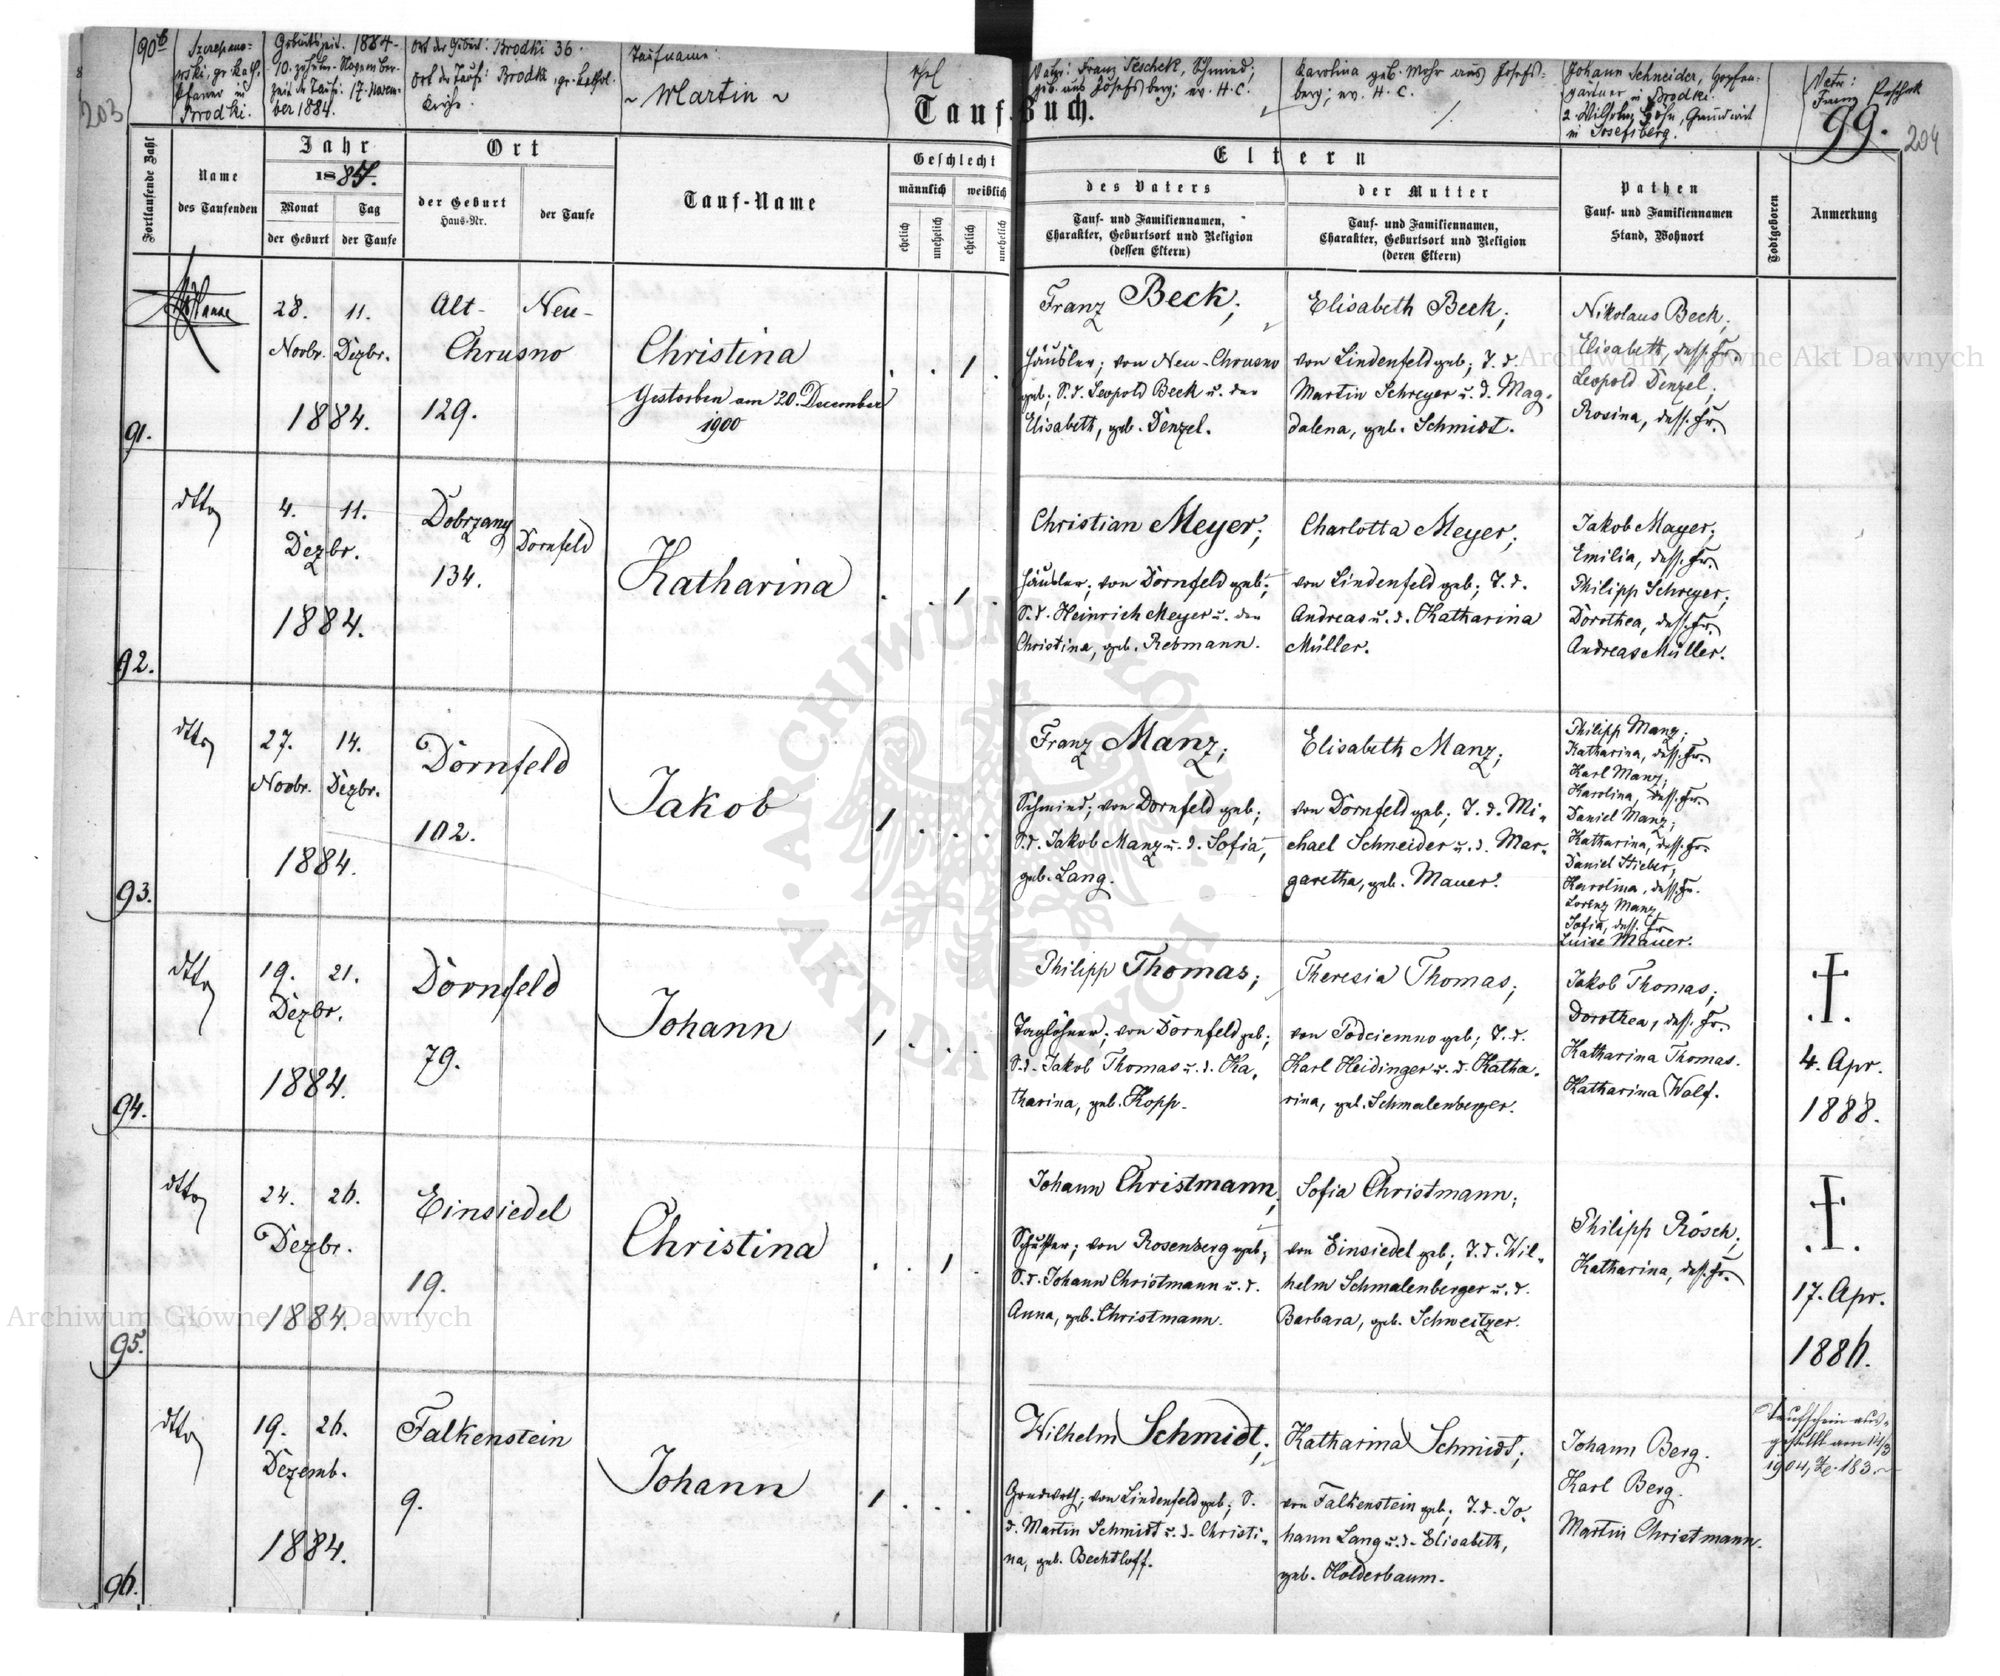 90b
Szczepano-
wski, gr. kath.
Pfarrer in
Brodki.
Geburtszeit. 1884-
10. zehnten November
zeit der Taufe: 17. Novem-
ber 1884.
Ort der Geburt: Brodki 36.
Ort der Taufe: Brodki, gr. kathol.
Kirche.
Taufname:
~ Martin ~
ehel
Vater: Franz Peschek, Schmied;
geb. aus Josefsberg; ev. H. C.
Karolina geb. Mohr aus Josefs-
berg; ev. H. C.
Johann Schneider, Hopfen-
gärtner in Brodki.
2. Wilhelm Höhn, Grundwirt
in Josefsberg.
Vater:
Franz Peschek
203
Tauf-Buch.
99.
204
Fortlaufende Zahl
Name
des Taufenden
Jahr
1884.
Monat
der Geburt
Tag
der Taufe
Ort
der Geburt
Haus-Nr.
der Taufe
Tauf-Name
Geschlecht
männlich
weiblich
ehelich
unehelich
ehelich
unehelich
Eltern
des Vaters
Tauf- und Familiennamen,
Charakter, Geburtsort und Religion
(dessen Eltern)
der Mutter
Tauf- und Familiennamen,
Charakter, Geburtsort und Religion
(deren Eltern)
Pathen
Tauf- und Familiennamen
Stand, Wohnort
Todtgeboren
Anmerkung
91.
28. 11.
Novbr. Dezbr.
1884.
Alt- Neu-
Chrusno
129.
Christina
Gestorben am 20. December
1900
. . 1 .
Franz Beck;
Häusler; von Neu-Chrusno
geb; S. d. Leopold Beck u. der
Elisabeth, geb. Denzel.
Elisabeth Beck;
von Lindenfeld geb; T. d.
Martin Schreyer u. d. Mag-
dalena, geb. Schmidt.
Nikolaus Beck;
Elisabeth, dess. Fr.
Leopold Denzel;
Rosina, dess. Fr.
92.
dtto
4. 11.
Dezbr.
1884.
Dobrzany
Dornfeld
134.
Katharina
. . 1 .
Christian Meyer;
Häusler; von Dornfeld geb;
S. d. Heinrich Meyer u. der
Christina, geb. Rebmann.
Charlotta Meyer;
von Lindenfeld geb; T. d.
Andreas u. d. Katharina
Müller.
Jakob Mayer;
Emilia, dess. Fr.
Philipp Schreyer;
Dorothea, dess. Fr.
Andreas Müller.
93.
dtto
27. 14.
Novbr. Dezbr.
1884.
Dornfeld
102.
Jakob
1 . . .
Franz Manz;
Schmied; von Dornfeld geb;
S. d. Jakob Manz u. d. Sofia,
geb. Lang.
Elisabeth Manz;
von Dornfeld geb; T. d. Mi-
chael Schneider u. d. Mar-
garetha, geb. Mauer.
Philipp Manz;
Katharina, dess. Fr.
Karl Manz;
Karolina, dess. Fr.
Daniel Manz;
Katharina, dess. Fr.
Daniel Stieber,
Karolina, dess. Fr.
Lorenz Manz
Sofia, dess. Fr
Luise Mauer.
94.
dtto
19. 21.
Dezbr.
1884.
Dornfeld
79.
Johann
1 . . .
Philipp Thomas;
Taglöhner; von Dornfeld geb;
S. d. Jakob Thomas u. d. Ka-
tharina, geb. Kopp.
Theresia Thomas;
von Podciemno geb; T. d.
Karl Heidinger u. d. Katha-
rina, geb. Schmalenberger.
Jakob Thomas;
Dorothea, dess. Fr.
Katharina Thomas.
Katharina Wolf.
4. Apr.
1888.
95.
dtto
24. 26.
Dezbr.
1884.
Einsiedel
19.
Christina
. . 1 .
Johann Christmann;
Schuster; von Rosenberg geb;
S. d. Johann Christmann u. d.
Anna, geb. Christmann.
Sofia Christmann;
von Einsiedel geb; T. d. Wil-
helm Schmalenberger u. d.
Barbara, geb. Schweitzer.
Philipp Rösch;
Katharina, dess. Fr.
17. Apr.
1886.
96.
dtto
19. 26.
Dezemb.
1884.
Falkenstein
9.
Johann
1 . . .
Wilhelm Schmidt;
Grundwrth; von Lindenfeld geb; S.
d. Martin Schmidt u. d. Christi-
na, geb. Bechtloff.
Katharina Schmidt;
von Falkenstein geb; T. d. Jo-
hann Lang u. d. Elisabeth,
geb. Holderbaum.
Johann Berg.
Karl Berg.
Martin Christmann.
Taufschein aus-
gestellt am 14/3
1904, Ze. 183.
Archiwum Główne Akt Dawnych
Archiwum Główne Akt Dawnych
ARCHIWUM GŁÓWNE AKT DAWNYCH